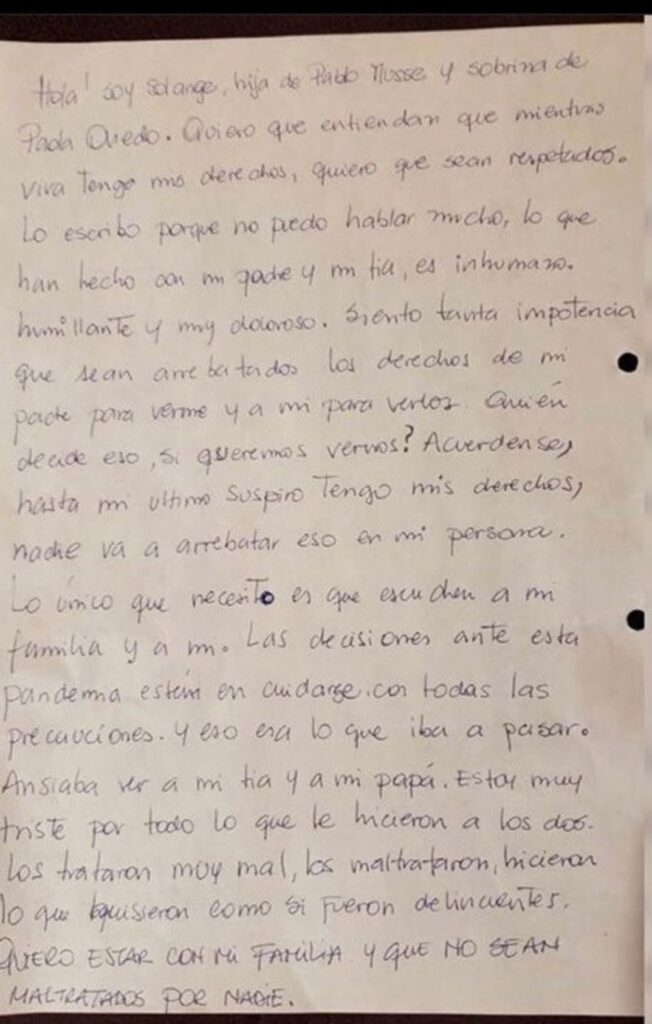 Hola! soy Solange, hija de Pablo Musse y sobrina de
Paola Oviedo. Quiero que entiendan que mientras
viva tengo mis derechos, quiero que sean respetados.
Lo escribo porque no puedo hablar mucho, lo que
han hecho con mi padre y mi tia, es inhumano.
humillante y muy doloroso. Siento tanta impotencia
que sean arrebatados los derechos de mi
padre para verme y a mi para verlos. Quién
decide eso, si queremos vernos? Acuerdense,
hasta mi ultimo suspiro tengo mis derechos,
nadie va a arrebatar eso en mi persona.
Lo único que necesito es que escuchen a mi
familia y a mi. Las decisiones ante esta
pandemia están en cuidarse con todas las
precauciones. y eso era lo que iba a pasar.
Ansiaba ver a mi tia y a mi papá. Estoy muy
triste por todo lo que le hicieron a los dos.
Los trataron muy mal, los maltrataron, hicieron
lo que quisieron como si fueron delincuentes.
QUIERO ESTAR CON MI FAMILIA Y QUE NO SEAN
MALTRATADOS POR NADIE.